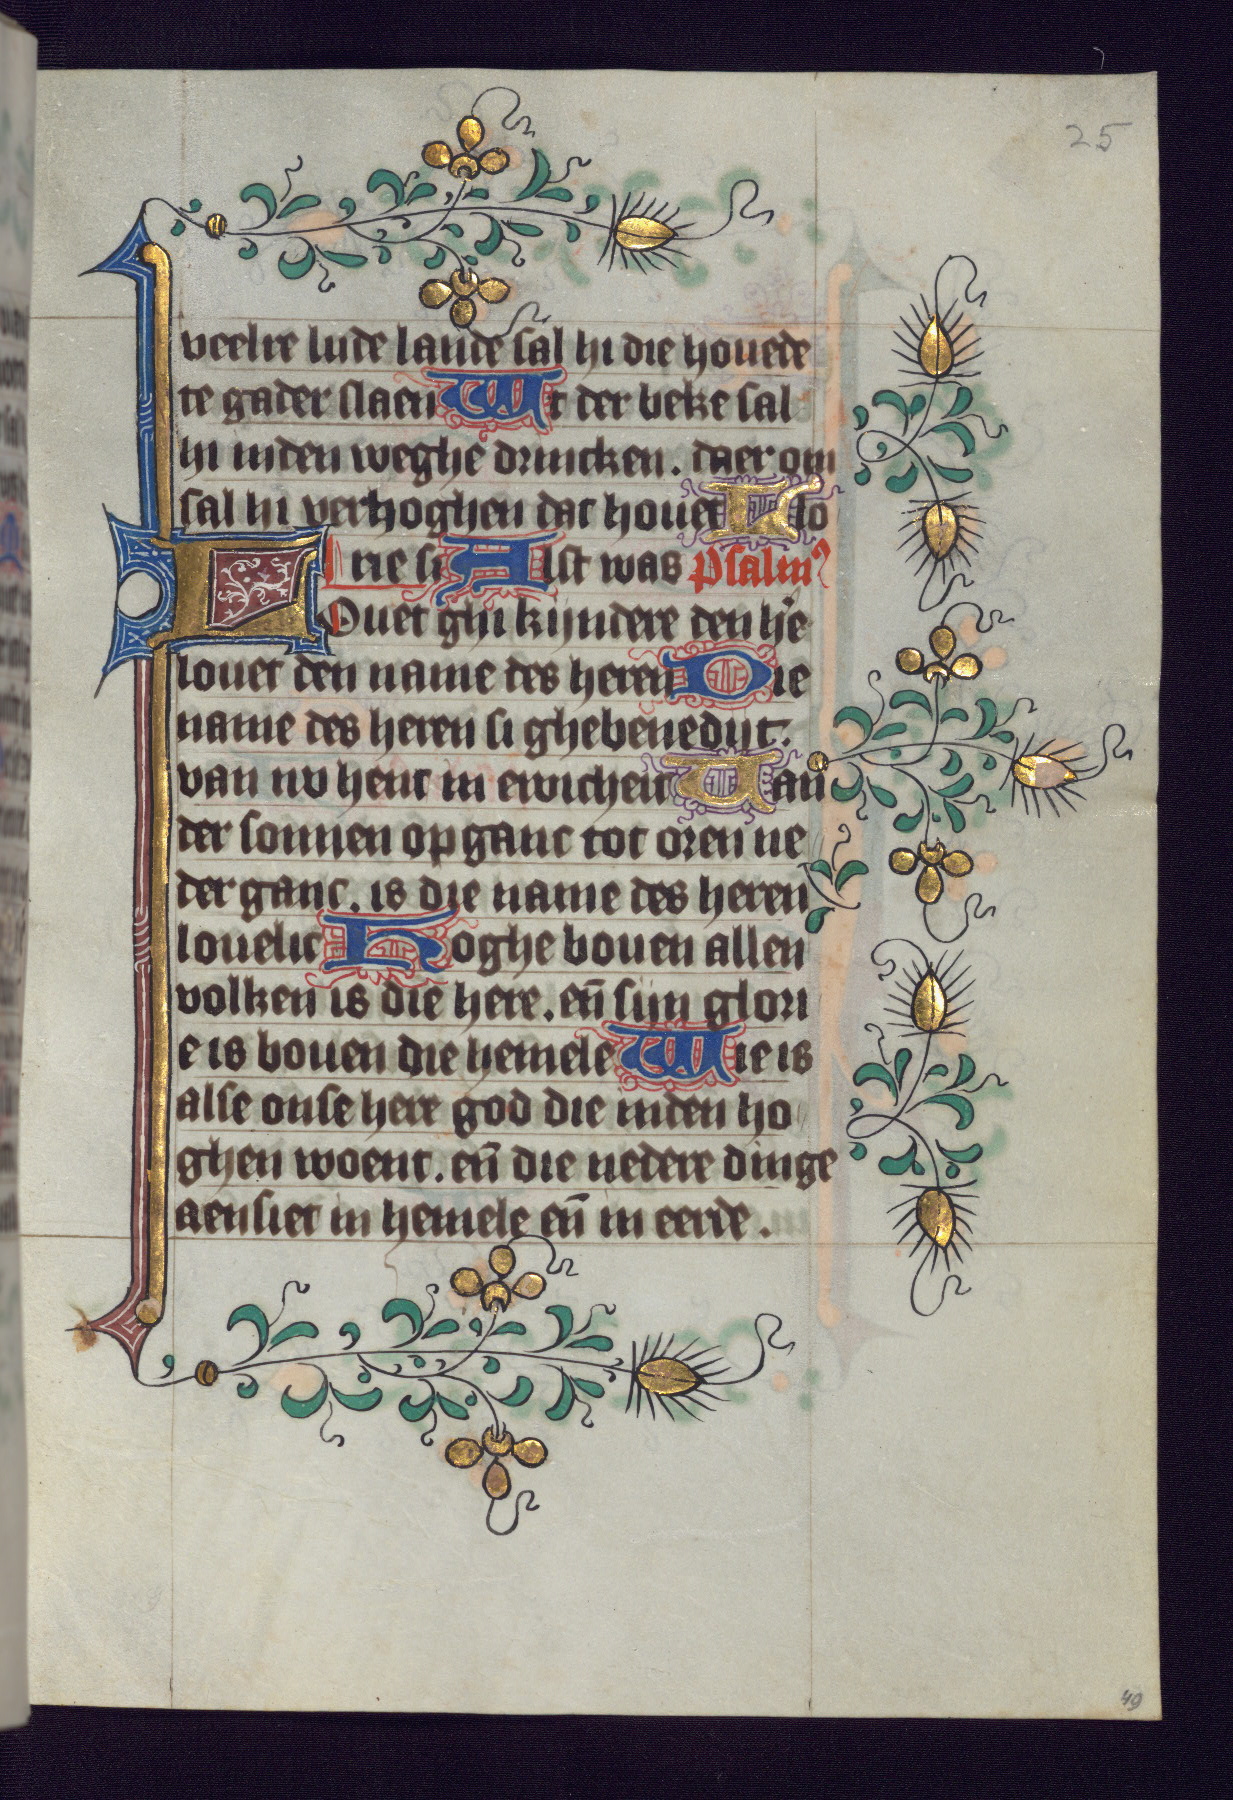 25
veelre lude lande sal hi die houede
te gader slaen Wt der beke sal
hi inden weghe drincken. daer om
sal hi verhoghen dat houet Glo
rie si Alst was psalm
Louet ghi kijndere den h'e
louet den name des heren Die
name des heren si ghebenedijt.
van nv hent in ewicheit Van
der sonnen op ganc tot oren ne
der ganc. is die name des heren
louelic Hoghe bouen allen
volken is die here. en̄ sijn glori
e is bouen die hemele Wie is
alse onse here god die inden ho
ghen woent. en̄ die nedere dinge
aensiet in hemele en̄ in eerde.
49